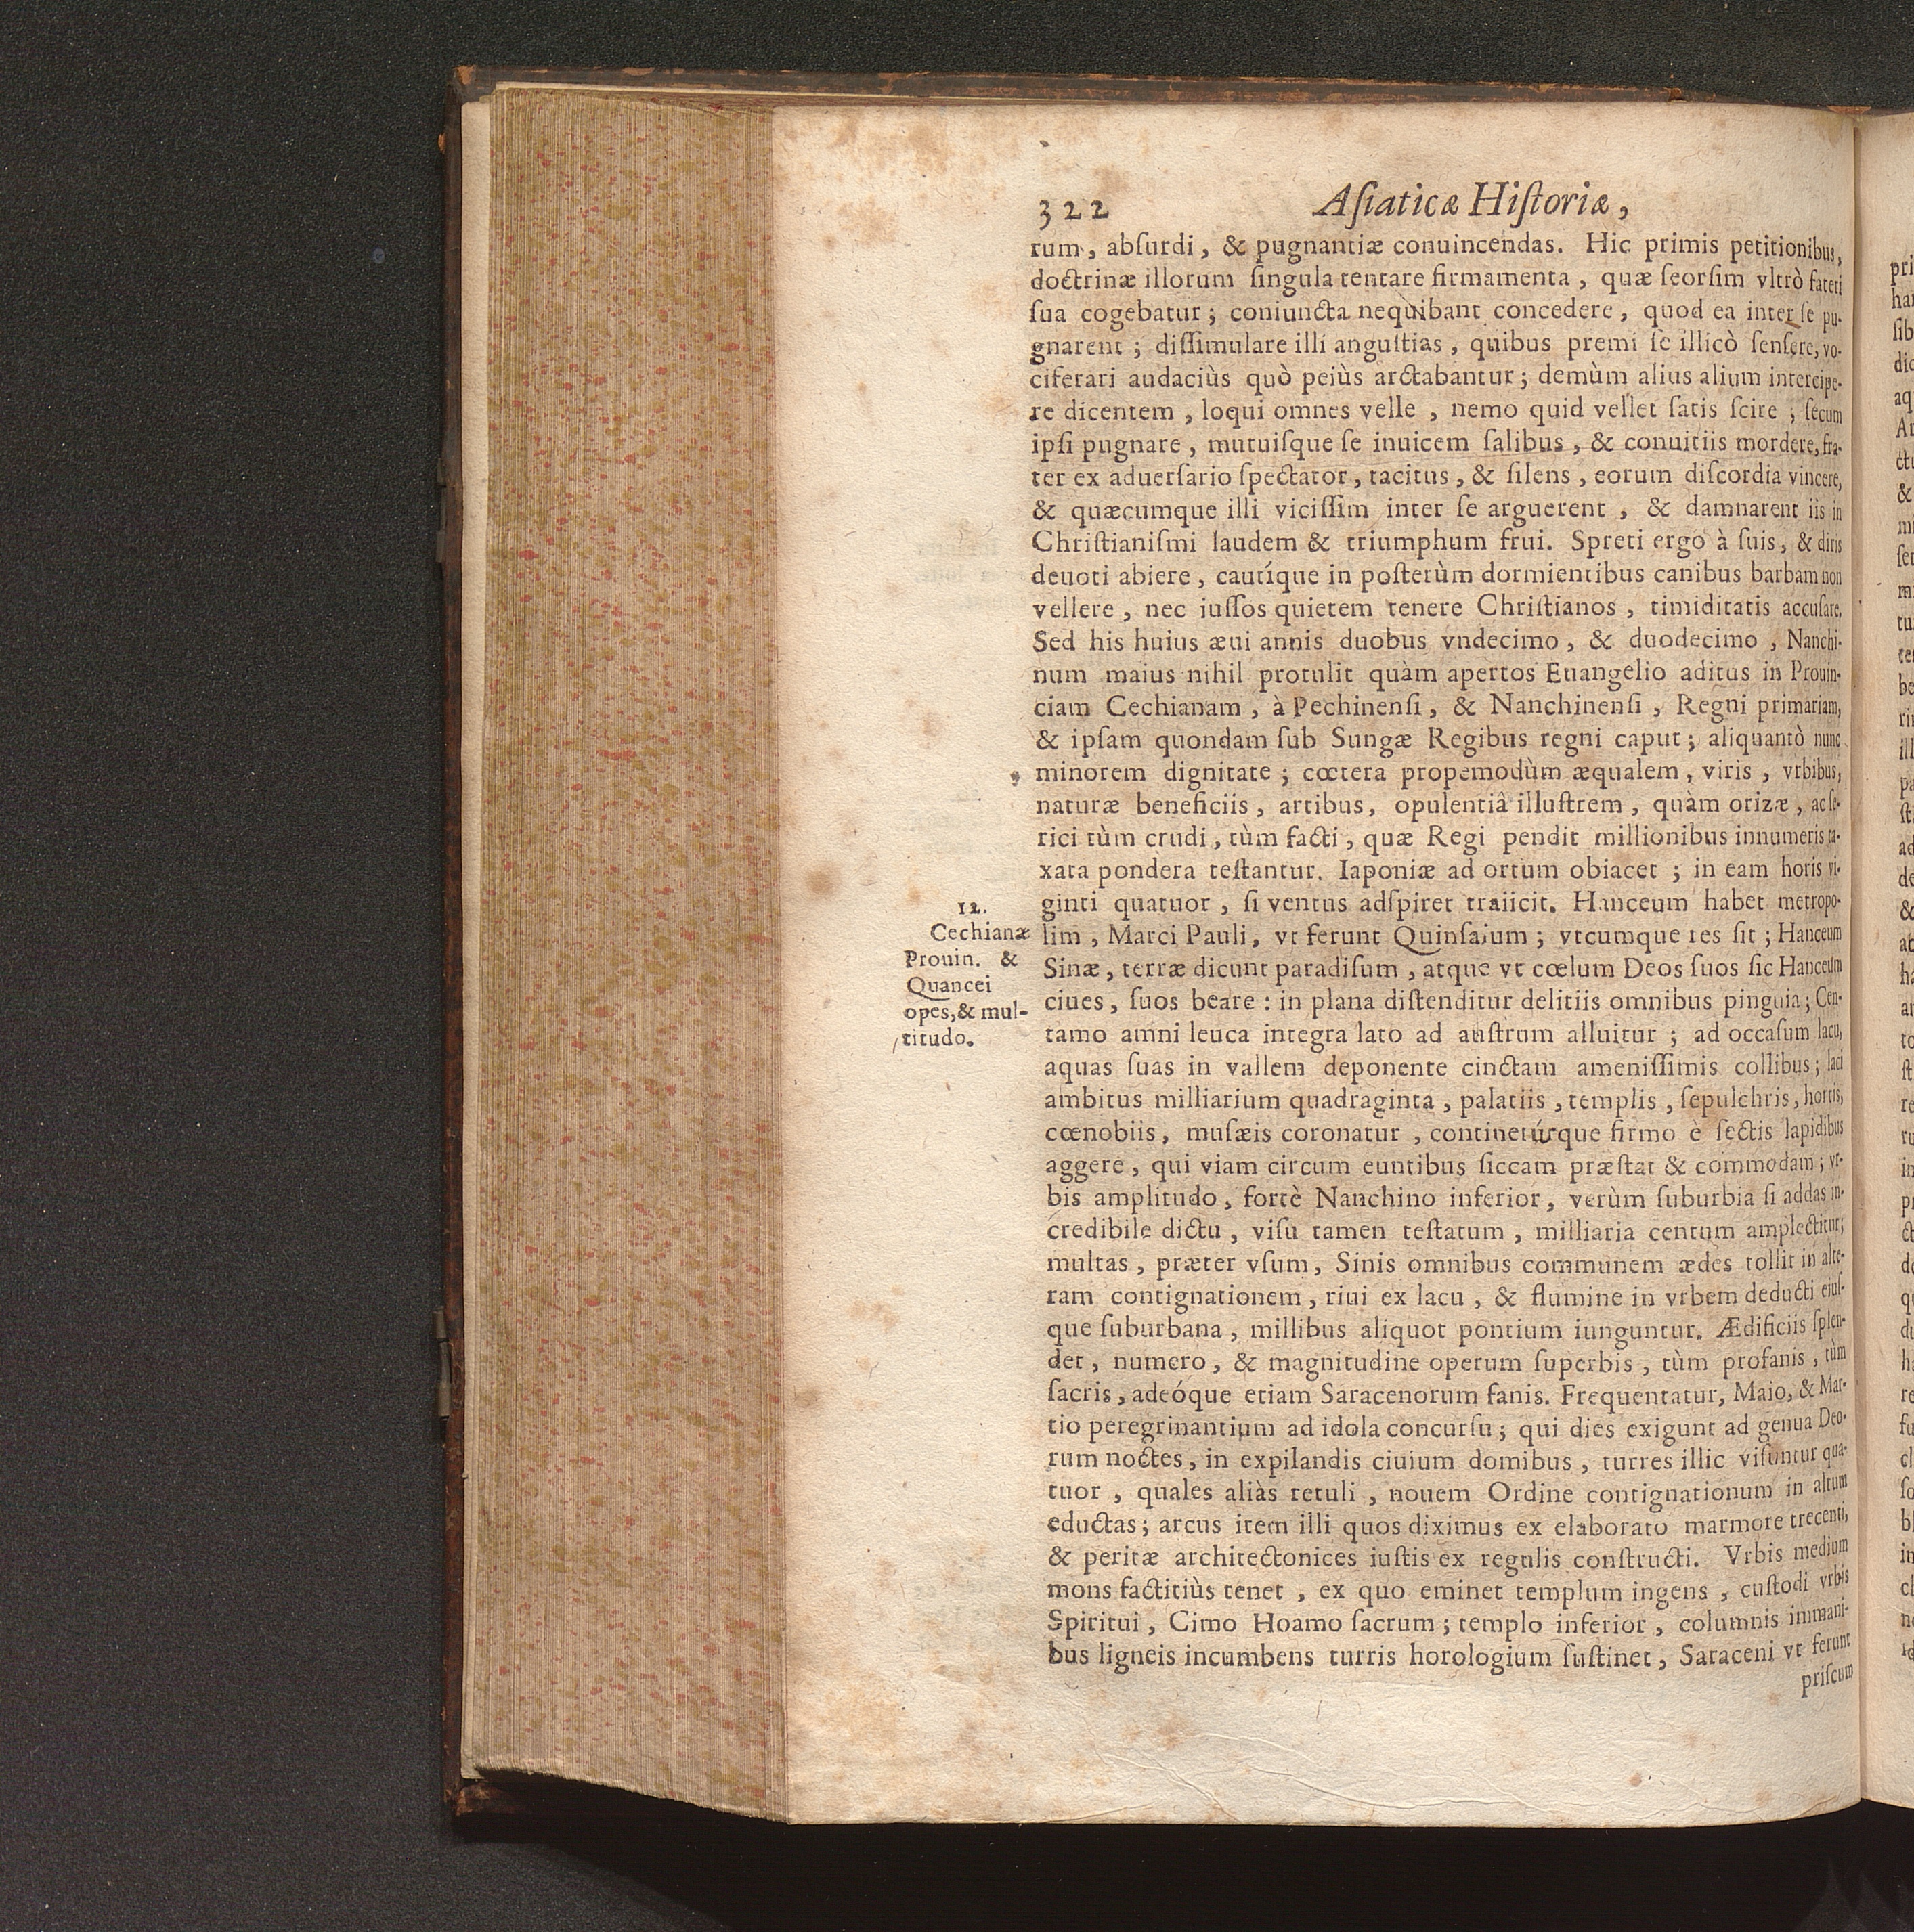 322 Aſiaticæ Hiſtoriæ,
rum, abſurdi, & pugnantiæ conuincendas. Hic primis petitionibus,
doctrinæ illorum ſingula tentare firmamenta, quæ ſeorſim vltrò fateri
ſua cogebatur; coniuncta nequibant concedere, quod ea inter ſe pu-
gnarent; diſſimulare illi anguſtias, quibus premi ſe illicò ſenſere, vo-
ciferari audaciùs quò peiùs arctabantur; demùm alius alium intercipe-
re dicentem, loqui omnes velle, nemo quid vellet ſatis ſcire; ſecum
ipſi pugnare, mutuiſque ſe inuicem ſalibus, & conuitiis mordere, fra-
ter ex aduerſario ſpectator, tacitus, & ſilens, eorum diſcordia vincere,
& quæcumque illi viciſſim inter ſe arguerent, & damnarent iis in
Chriſtianiſmi laudem & triumphum frui. Spreti ergo à ſuis, & diris
deuoti abiere, cautíque in poſterùm dormientibus canibus barbam non
vellere, nec iuſſos quietem tenere Chriſtianos, timiditatis accuſare.
Sed his huius æui annis duobus vndecimo, & duodecimo, Nanchi-
num maius nihil protulit quàm apertos Euangelio aditus in Prouin-
ciam Cechianam, à Pechinenſi, & Nanchinenſi, Regni primariam,
& ipſam quondam ſub Sungæ Regibus regni caput; aliquantò nunc
minorem dignitate; cœtera propemodùm æqualem, viris, vrbibus,
naturæ beneficiis, artibus, opulentiâ illuſtrem, quàm orizæ, ac ſe-
rici tùm crudi, tùm facti, quæ Regi pendit millionibus innumeris ta-
xata pondera teſtantur. Iaponiæ ad ortum obiacet; in eam horis vi-
ginti quatuor, ſi ventus adſpiret traiicit. Hanceum habet metropo-
lim, Marci Pauli, vt ferunt Quinſaium; vtcumque res ſit; Hanceum
Sinæ, terræ dicunt paradiſum, atque vt cœlum Deos ſuos ſic Hanceum
ciues, ſuos beare: in plana diſtenditur delitiis omnibus pinguia; Cen-
tamo amni leuca integra lato ad auſtrum alluitur; ad occaſum lacu,
aquas ſuas in vallem deponente cinctam ameniſſimis collibus; laci
ambitus milliarium quadraginta, palatiis, templis, ſepulchris, hortis,
cœnobiis, muſæis coronatur, continetúrque firmo è ſectis lapidibus
aggere, qui viam circum euntibus ſiccam præſtat & commodam; vr-
bis amplitudo, fortè Nanchino inferior, verùm ſuburbia ſi addas in-
credibile dictu, viſu tamen teſtatum, milliaria centum amplectitur;
multas, præter vſum, Sinis omnibus communem ædes tollit in alte-
ram contignationem, riui ex lacu, & flumine in vrbem deducti eiuſ-
que ſuburbana, millibus aliquot pontium iunguntur. Ædificiis ſplen-
det, numero, & magnitudine operum ſuperbis, tùm profanis, tùm
ſacris, adeóque etiam Saracenorum fanis. Frequentatur, Maio, & Mar-
tio peregrinantium ad idola concurſu; qui dies exigunt ad genua Deo-
rum noctes, in expilandis ciuium domibus, turres illic viſuntur qua-
tuor, quales aliàs retuli, nouem Ordine contignationum in altum
eductas; arcus item illi quos diximus ex elaborato marmore trecenti,
& peritæ architectonices iuſtis ex regulis conſtructi. Vrbis medium
mons factitiùs tenet, ex quo eminet templum ingens, cuſtodi vrbis
Spiritui, Cimo Hoamo ſacrum; templo inferior, columnis immani-
bus ligneis incumbens turris horologium ſuſtinet, Saraceni vt ferunt
priſcum
12.
Cechianæ
Prouin. &
Quancei
opes, & mul-
titudo.